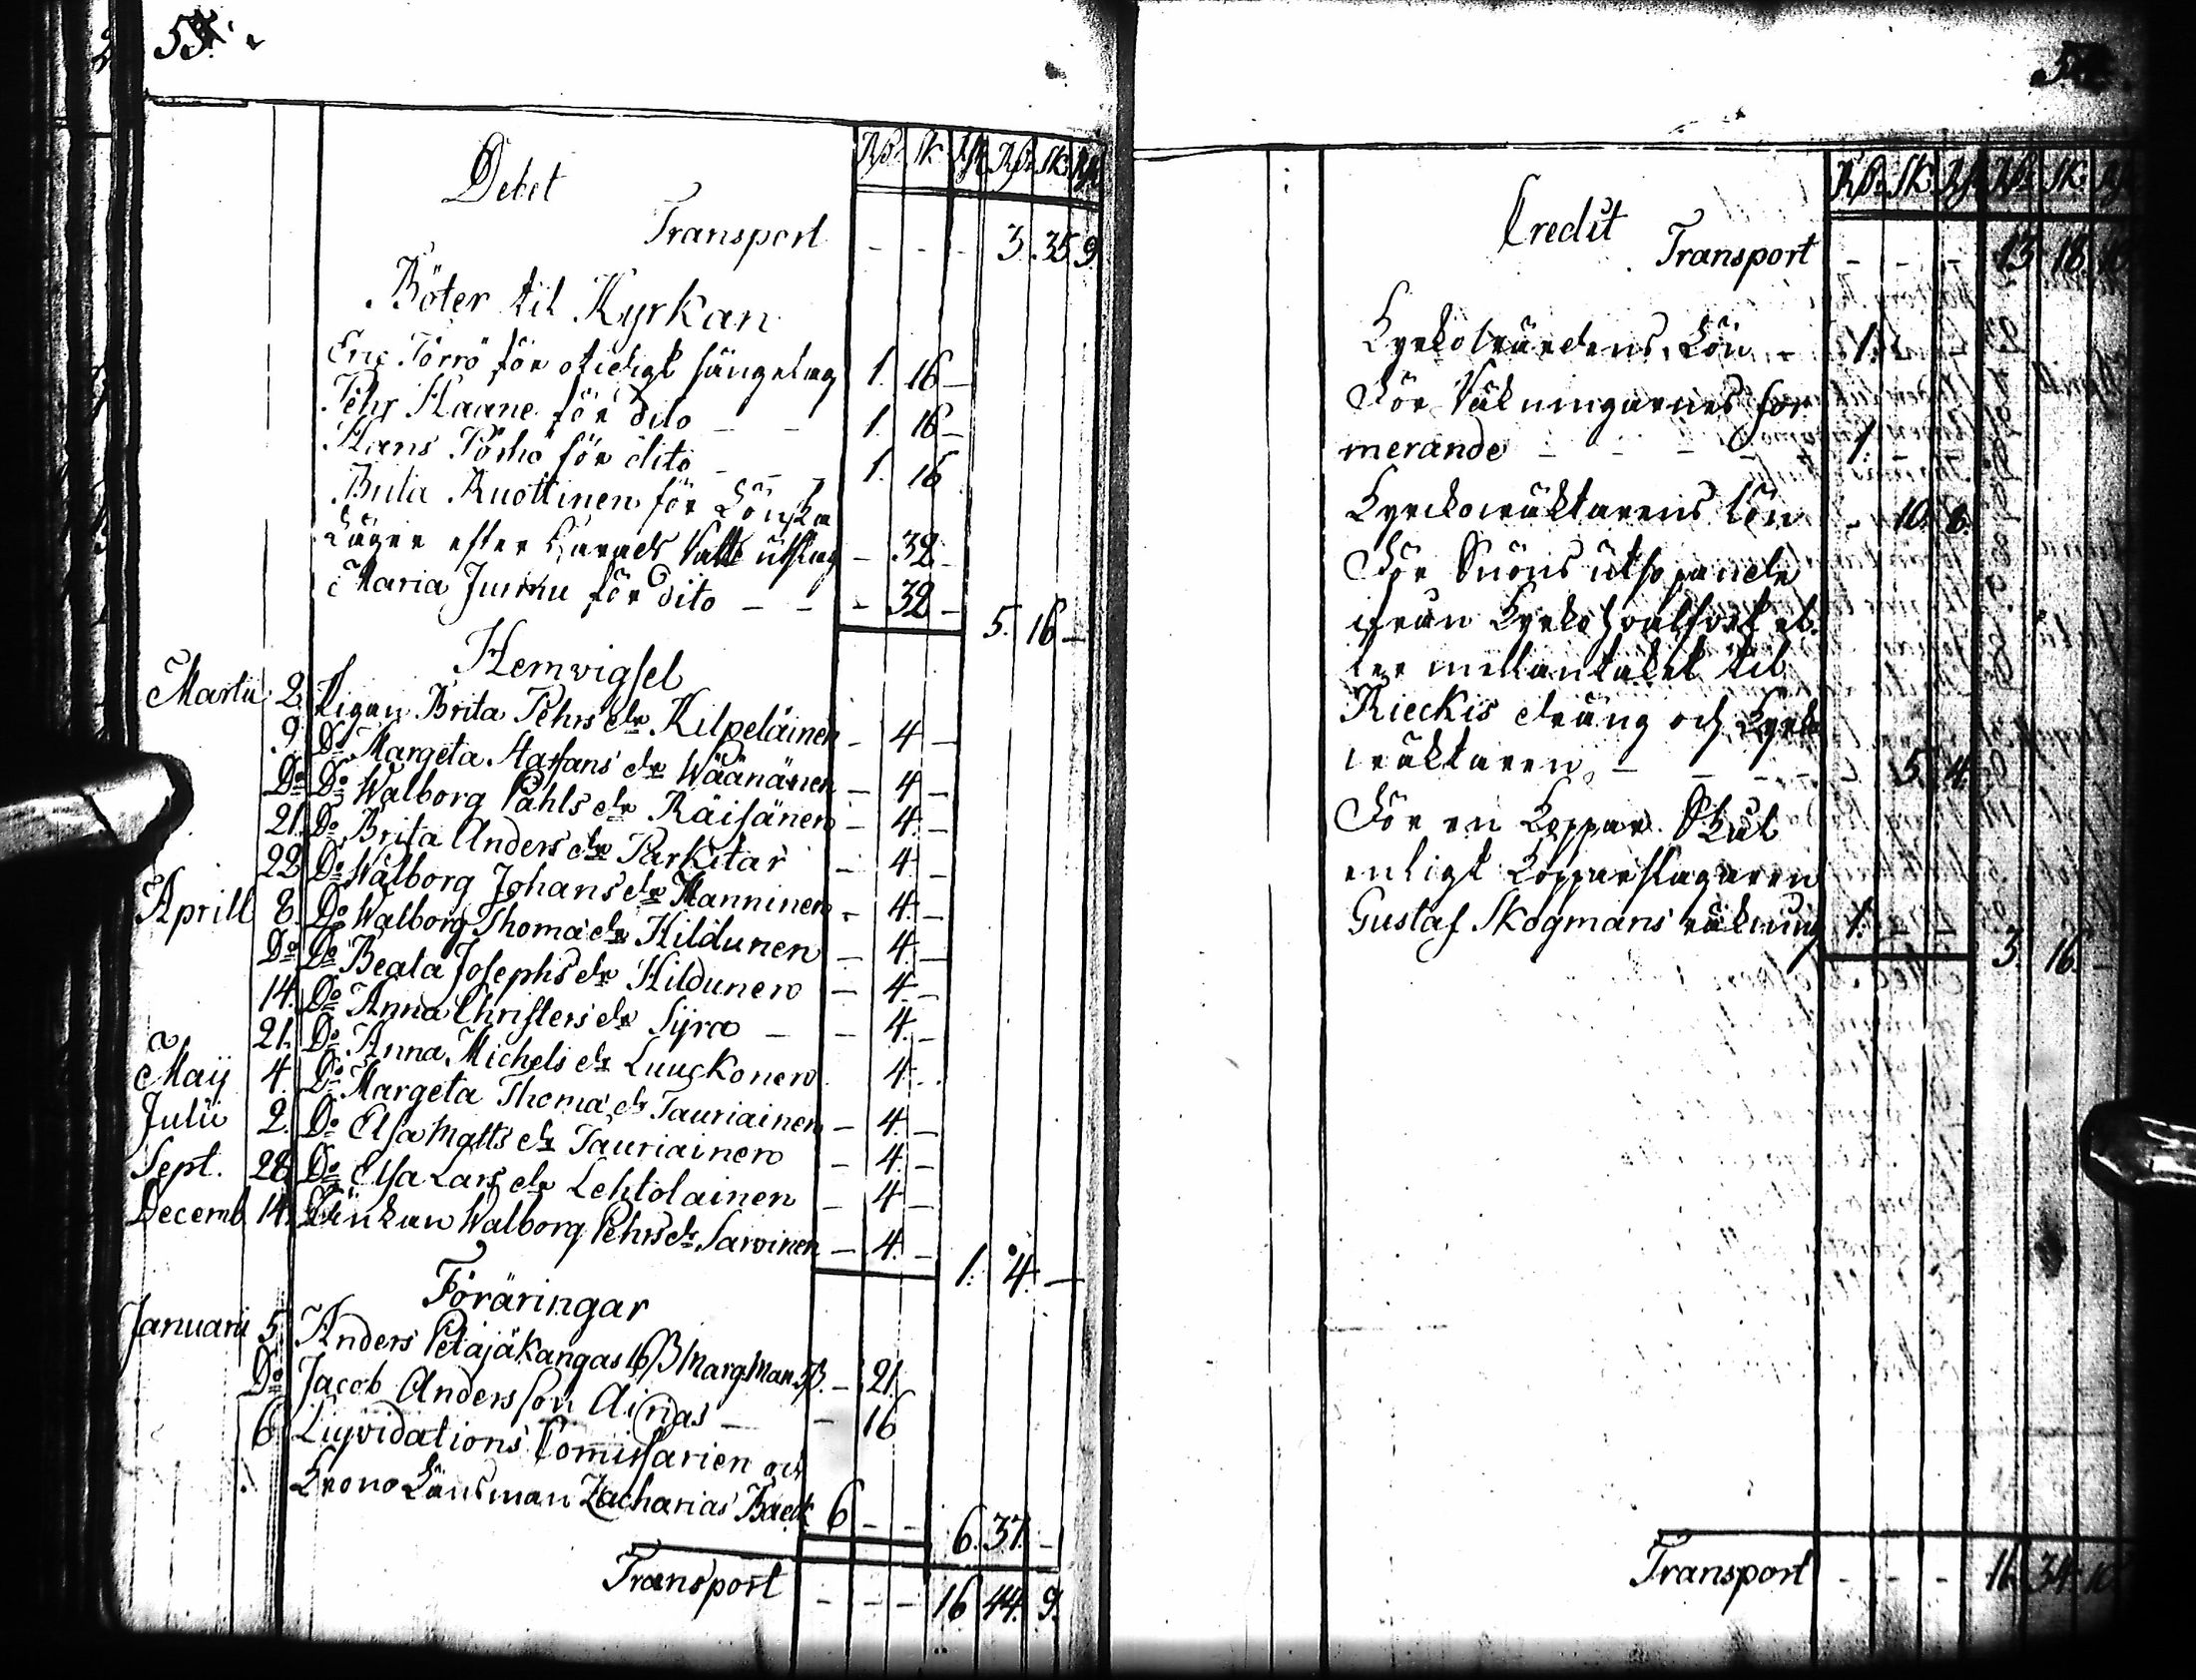 53.
Debet
Rd. sk. rst. Rd. sk. rst.
Transport - - - 3. 35. 9.
Böter til Kyrkan
Eric Törrö för otidigt sängelag 1. 16 -
Pehr Haane för dito - - 1. 16 -
Hans för dito - - 1. 16
Brita Ruottinen för Lönska
Läger efter Härads Rätts utslag - 32 -
Maria Juntu för dito - - - 32 -
5. 16 -
Hemvigsel
Martii 2. Pigan Brita Pehrs dr Kilpeläinen - 4 -
9. Do Margeta Staffans dr Wäänänen - 4 -
Do Do Walborg Påhls dr Räisänen - 4. -
21. Do Brita Anders dr Parkitar - 4. -
22 Do Walborg Johans dr Manninen - 4. -
Aprill 8. Do Walborg Thomæ dr Hildunen - 4. -
Do Do Beata Josephs dr Hildunen - 4. -
14. Do Anna Christers dr Syra - - 4. -
21. Do Anna Michels dr Luuckonen 4. -
Maij 4. Do Margeta Thomæ dr Tauriainen - 4. -
Julii 2. Do Elsa Matts dr Tauriainen - 4. -
Sept. 28 Do Elsa Lars dr Lehtolainen - 4 -
Decemb 14. Enkan Walborg Pehrs dr Sarvinen - 4. -
1. 4. -
Föräringar
Januarii 5. Anders Petäjäkangas 16 ß Marg. Man. 5 ß. - 21.
Do Jacob Andersson Airias - - 16
6. Liqvidations Comissarien och
Krono Länsman Zacharias Baeck 6 - -
6. 37. -
Transport - - - 16 44. 9.
Credit
Rd. sk. rst. Rd. sk.
Transport - - - 13 18. 10
Kyrkowärdens Lön - 1.
För Räkningarnes for
merande - - - - 1.
Kyrckowäktarens lön - 10. 8.
För Snöns utskopande
ifrån Kyrkohvalfvet el
ler mellantaket til
Rieckis dräng och Kyrko
wäktaren - - - 5. 4.
För en Koppar Skål
enligt Kopparslagaren
Gustaf Skogmans räkning 1.
3. 16. -
Transport - - - 34. 10